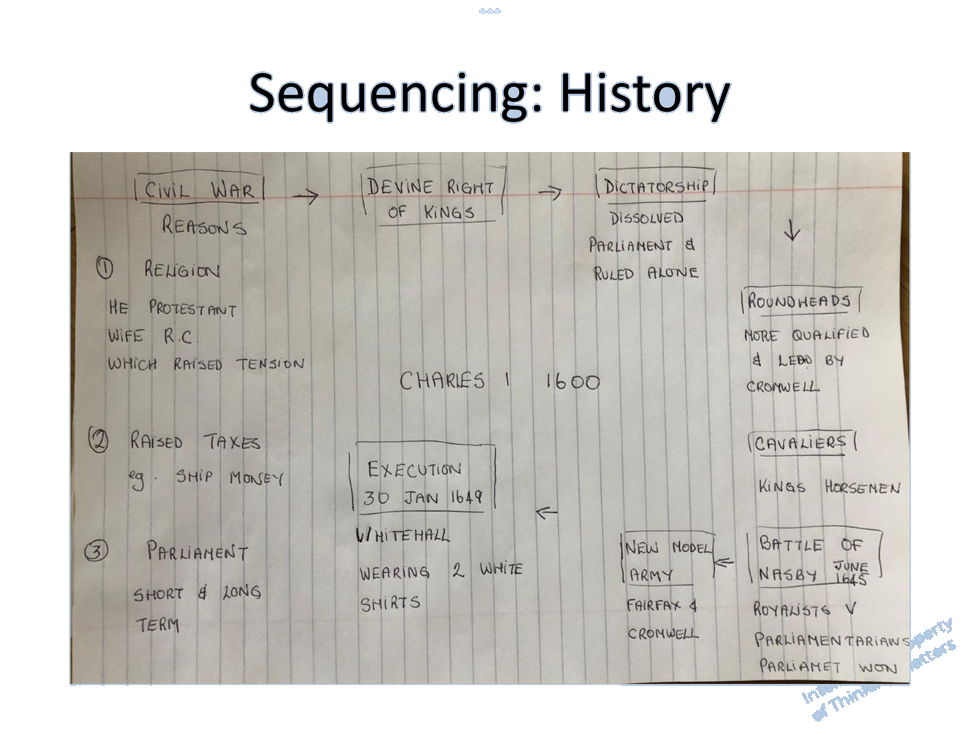 Sequencing: History
CIVIL WAR
REASONS
① RELIGION
HE PROTESTANT
WIFE R.C.
WHICH RAISED TENSION
② RAISED TAXES
eg. SHIP MONEY
③ PARLIAMENT
SHORT & LONG
TERM
→
DEVINE RIGHT
OF KINGS
→
DICTATORSHIP
DISSOLVED
PARLIAMENT &
RULED ALONE
↓
CHARLES I 1600
ROUNDHEADS
MORE QUALIFIED
& LED BY
CROMWELL
CAVALIERS
KINGS HORSEMEN
BATTLE OF
NASBY JUNE
1645
ROYALISTS V
PARLIAMENTARIANS
PARLIAMET WON
←
NEW MODEL
ARMY
FAIRFAX &
CROMWELL
←
EXECUTION
30 JAN 1649
WHITEHALL
WEARING 2 WHITE
SHIRTS
of Thinking